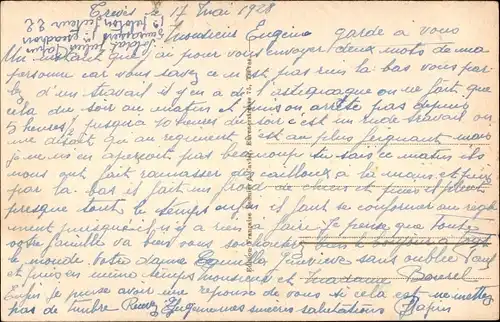 Treves le 17 mai 1928
Soldat
peloton
escadron
Secteur 22
Monsieur Eugène garde a vous
Un instant que j'ai pour vous envoyer deux mots de ma
personne car vous savez ce n'est pas rien la bas vous parle
d'un travail il y en a de l'astiquage on ne fait que
cela du soir au matin et puis on arrête pas depuis
5 heures jusqu'a 10 heures de soir c'est un rude travail on
me disait qu'au regiment c'est au plus feignant mais
je ne m'en aperçoit pas beaucoup tu sais ce matin ils
nous ont fait ramasser du cailloux a la main et puis
par la bas il fait un froid de chien et puis il pleut
presque tout le temps enfin il faut se conformer au regle
ment puisque il y a rien a faire. Je pense que toute
votre famille va bien vous souhaiterez bien le bonjour a tout
le monde votre dame Geneviève sans oublier Paul
et puis en même temps monsieur et Madame Bourel
Enfin je pense avoir une reponse de vous si cela est ne mettez
pas de timbre Recevez Eugène mes sincères salutations
Edition Française